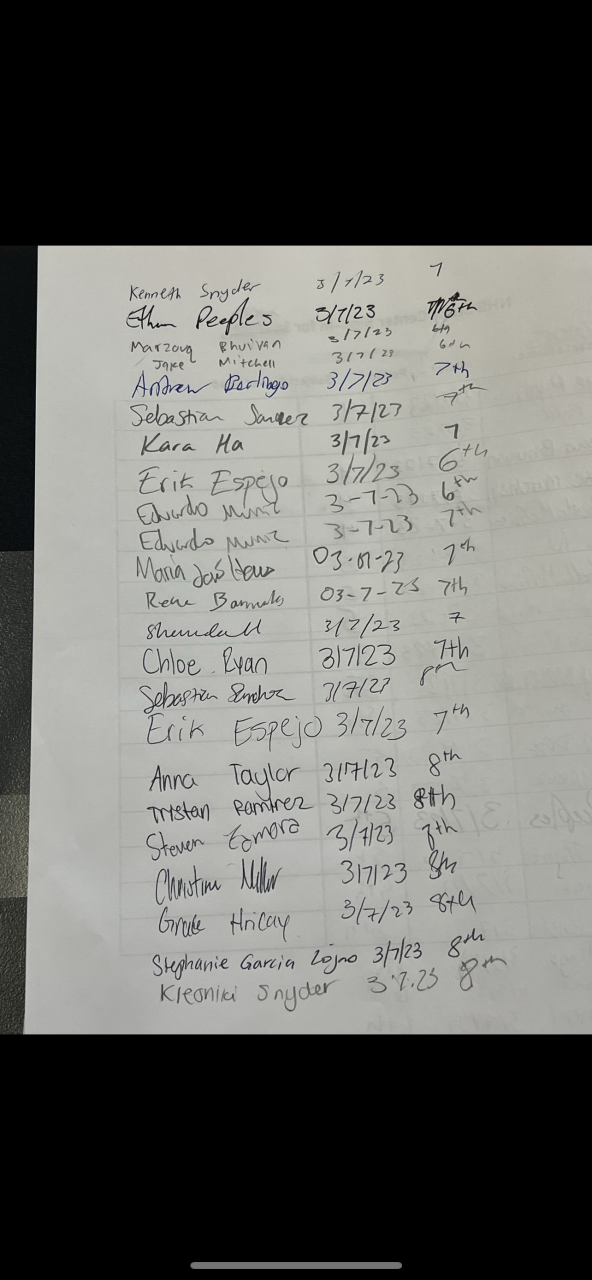 Kenneth Snyder 3/7/23 7
Ethan Peeples 3/7/23 6th
Marzouq Bhuivan 3/7/23 6th
Jake Mitchell 3/7/23 6th
Andrew 3/7/23 7th
Sebastian 3/7/23 7th
Kara Ha 3/7/23 7
Erik Espejo 3/7/23 6th
Eduardo Muniz 3-7-23 6th
Eduardo Muniz 3-7-23 7th
Maria 03-07-23 7th
Rene 03-7-23 7th
3/7/23 7
Chloe Ryan 3/7/23 7th
Sebastian 3/7/23
Erik Espejo 3/7/23 7th
Anna Taylor 3/7/23 8th
Tristan Ramirez 3/7/23 8th
Steven Zamora 3/7/23 8th
Christina Miller 3/7/23 8th
Hricay 3/7/23 8th
Stephanie Garcia 3/7/23 8th
Kleoniki Snyder 3.7.23 8th